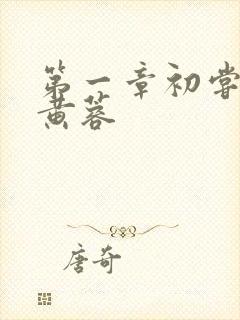 第一章初尝
黄蓉
唐奇